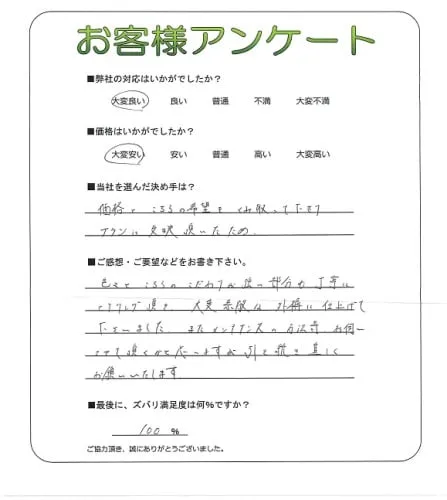 お客様アンケート
■弊社の対応はいかがでしたか？
大変良い 良い 普通 不満 大変不満
■価格はいかがでしたか？
大変安い 安い 普通 高い 大変高い
■当社を選んだ決め手は？
価格とこちらの希望をくみ取って下さり
プランに反映頂いたため.
■ご感想・ご要望などをお書き下さい。
色々とこちらのこだわりが強い部分も丁寧に
ヒアリング頂き、大変素敵な外構に仕上げて
下さいました。またメンテナンスの方法等、お伺い
させて頂くかと思いますが引き続き宜しく
お願いいたします
■最後に、ズバリ満足度は何%ですか？
100 %
ご協力頂き、誠にありがとうございました。